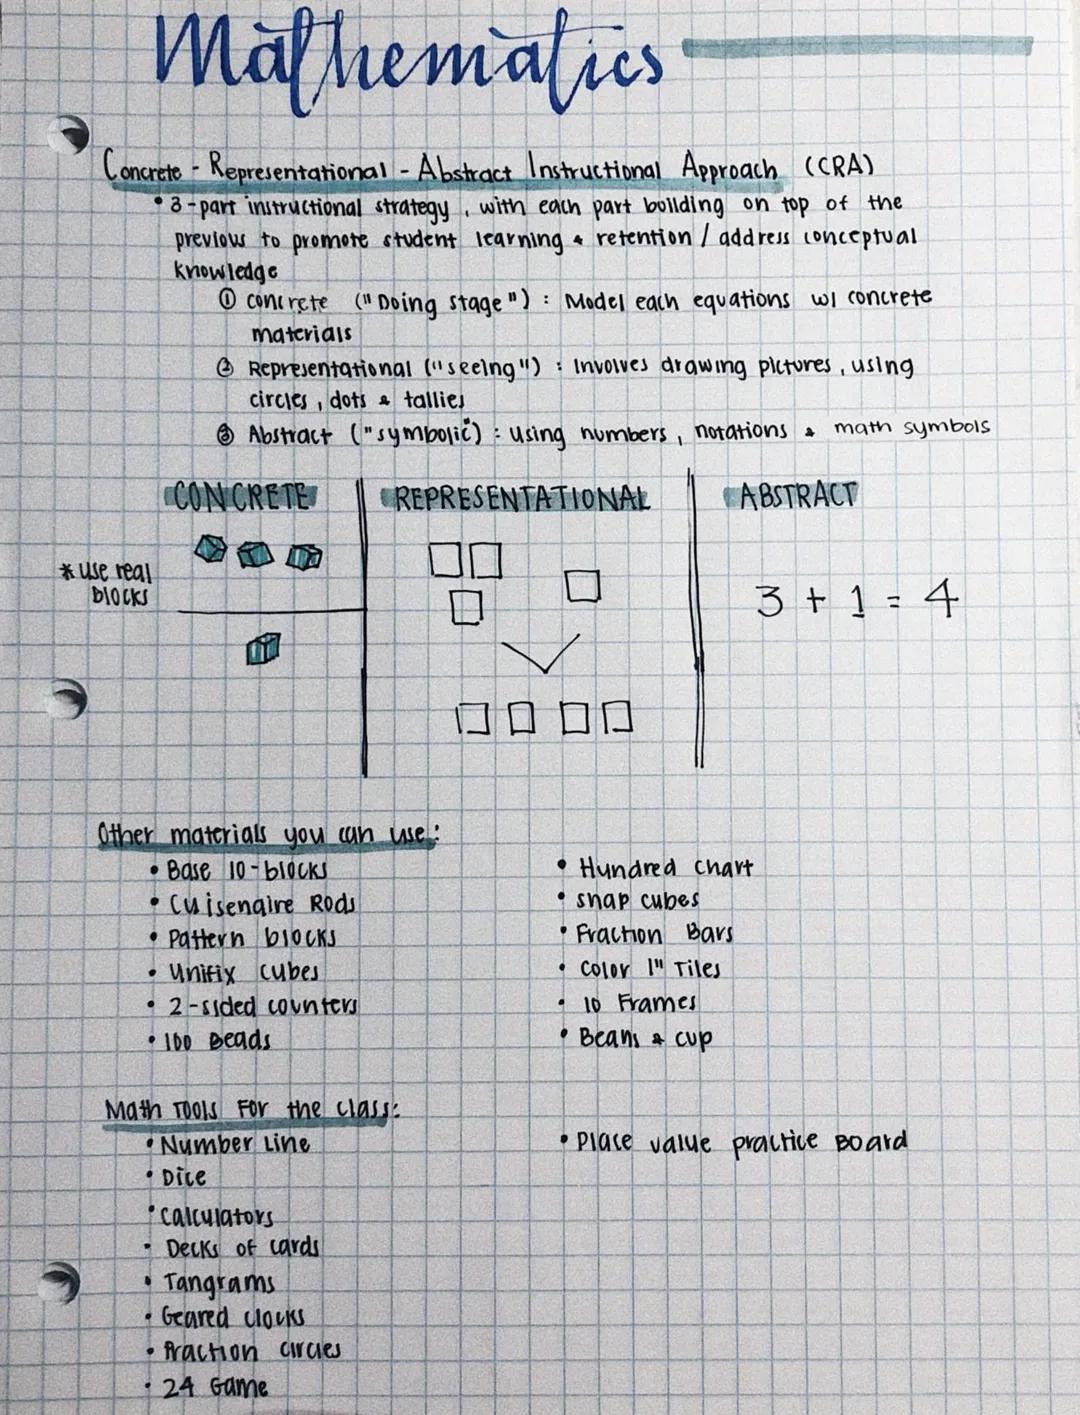 Mathematics
Concrete - Representational - Abstract Instructional Approach (CRA)
• 3-part instructional strategy, with each part building on top of the
previous to promote student learning & retention / address conceptual
knowledge
① Concrete ("Doing stage") : Model each equations w/ concrete
materials
② Representational ("seeing") : Involves drawing pictures, using
circles, dots & tallies
③ Abstract ("symbolic") : using numbers, notations & math symbols
CONCRETE REPRESENTATIONAL ABSTRACT
* use real
blocks
3 + 1 = 4
Other materials you can use:
• Base 10-blocks
• Cuisenaire Rods
• Pattern blocks
• Unifix cubes
• 2-sided counters
• 100 Beads
• Hundred Chart
• snap cubes
• Fraction Bars
• Color 1" Tiles
• 10 Frames
• Beans & cup
Math Tools For the class:
• Number Line
• Dice
• Calculators
• Decks of cards
• Tangrams
• Geared clocks
• Fraction circles
• 24 Game
• Place value practice Board